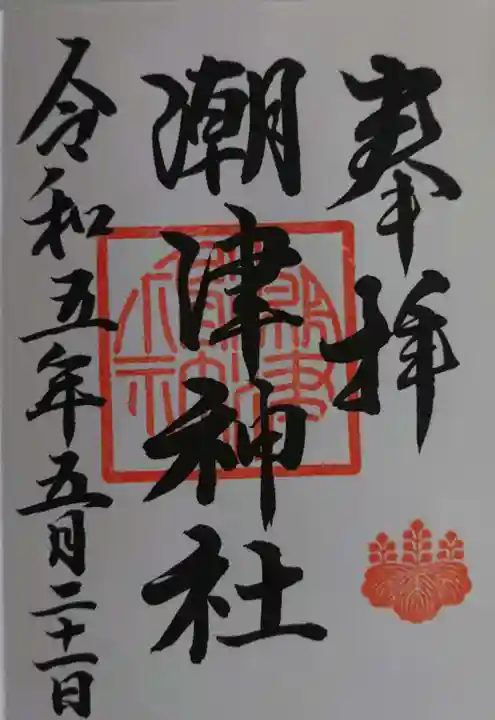 奉拝
潮津神社
令和五年五月二十一日